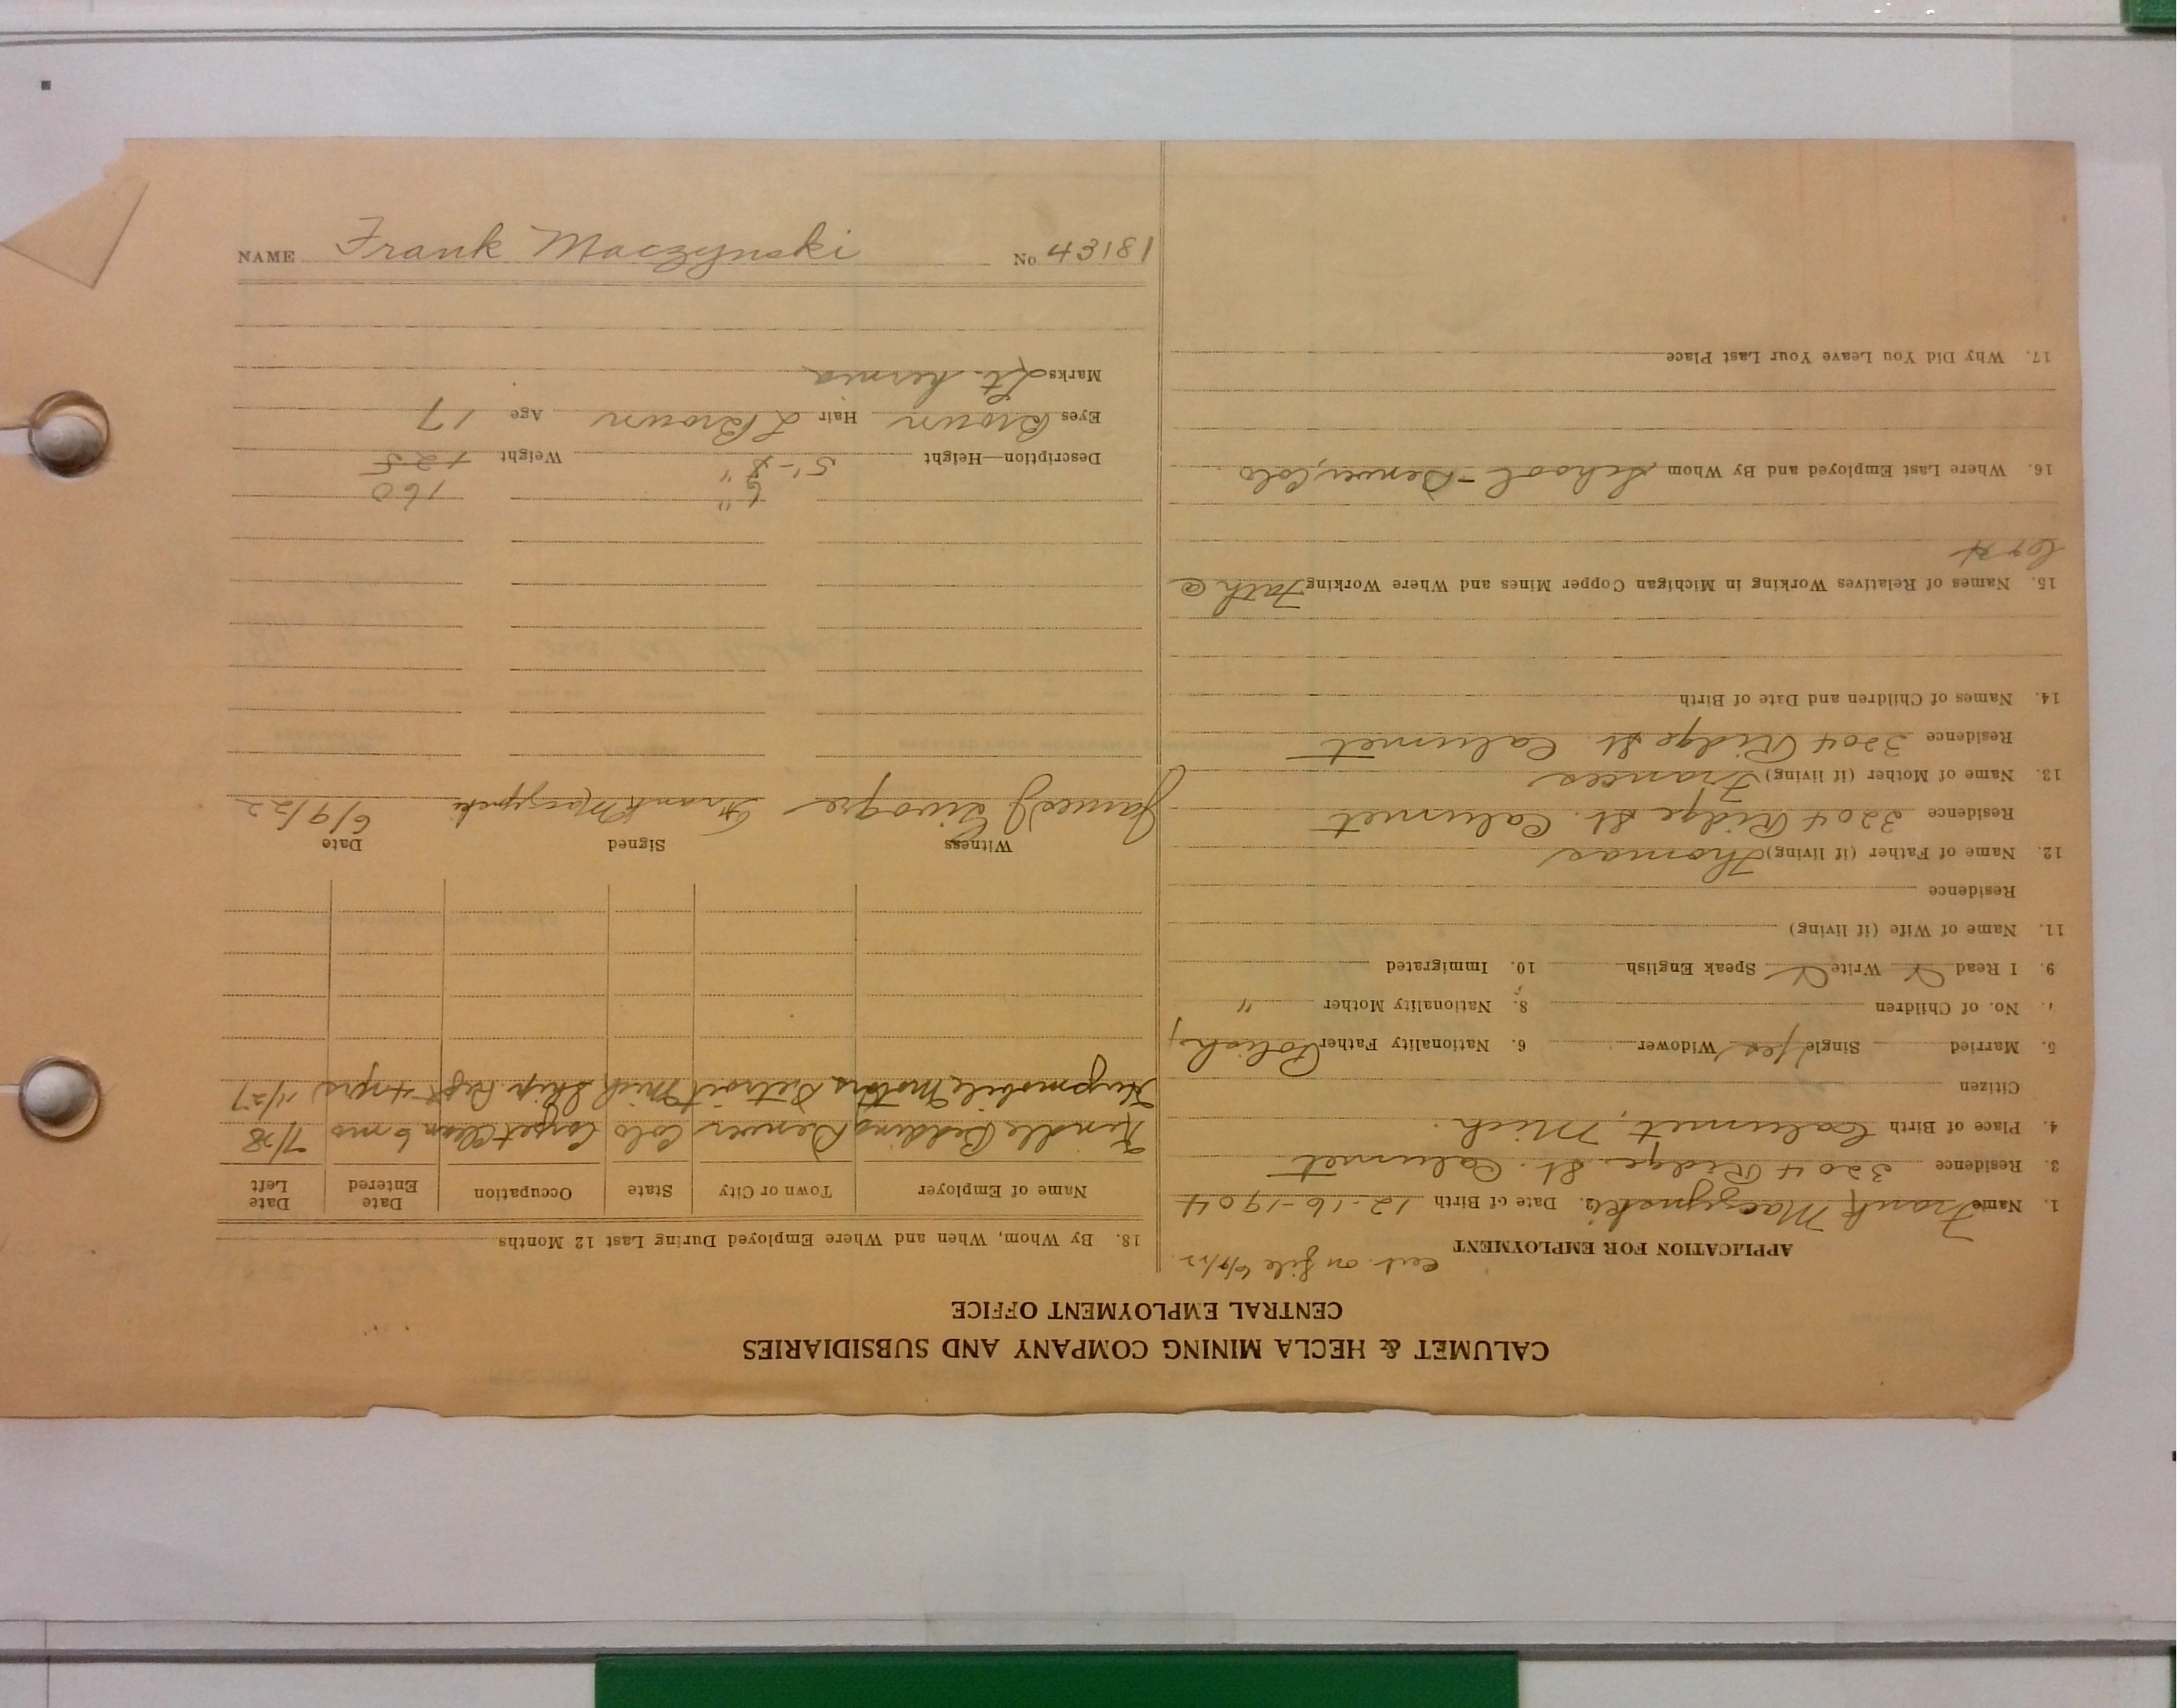 CALUMET & HECLA MINING COMPANY AND SUBSIDIARIES
CENTRAL EMPLOYMENT OFFICE
APPLICATION FOR EMPLOYMENT Cert. on file 6/9/22
1. Name Frank Maczynski 2. Date of Birth 12-16-1904
3. Residence 3204 Ridge St. Calumet
4. Place of Birth Calumet, Mich.
Citizen
5. Married Single Yes Widower 6. Nationality Father Polish
7. No. of Children 8. Nationality Mother "
9. I Read Write Speak English 10. Immigrated
11. Name of Wife (if living)
Residence
12. Name of Father (if living) Thomas
Residence 3204 Ridge St. Calumet
13. Name of Mother (if living) Frances
Residence 3204 Ridge St. Calumet
14. Names of Children and Date of Birth
15. Names of Relatives Working in Michigan Copper Mines and Where Working Fath @
C & H
16. Where Last Employed and By Whom School - Denver, Colo
17. Why Did You Leave Your Last Place
18. By Whom, When and Where Employed During Last 12 Months
Name of Employer Town or City State Occupation Date Entered Date Left
Kindle Bedding Denver Colo Carpet Clean 6 mo 7/28
Hupmobile Motors Detroit Mich Ship Dept 4 yrs 11/27
Witness Signed Date
James J Frank Maczynski 6/9/22
6" 160
Description—Height 5'-8" Weight 125
Eyes Brown Hair L Brown Age 17
Marks Lt. hernia
NAME Frank Maczynski No. 43181